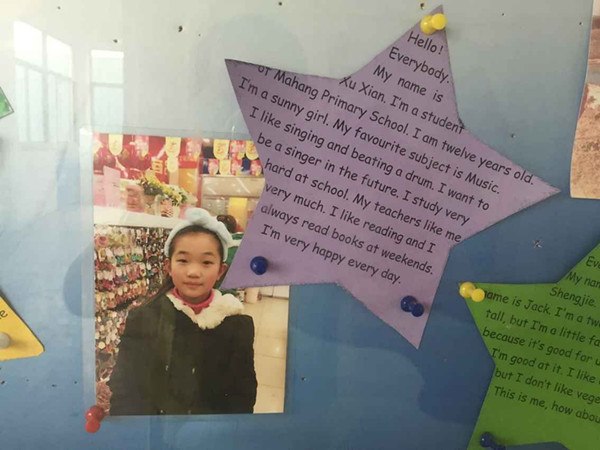 Hello!
Everybody.
My name is
Xu Xian. I'm a student
of Mahang Primary School. I am twelve years old.
I'm a sunny girl. My favourite subject is Music.
I like singing and beating a drum. I want to
be a singer in the future. I study very
hard at school. My teachers like me
very much. I like reading and I
always read books at weekends.
I'm very happy every day.
Eve
My nam
Shengjie.
ame is Jack. I'm a tw
tall, but I'm a little fa
because it's good for u
I'm good at it. I like
but I don't like vege
This is me, how abou